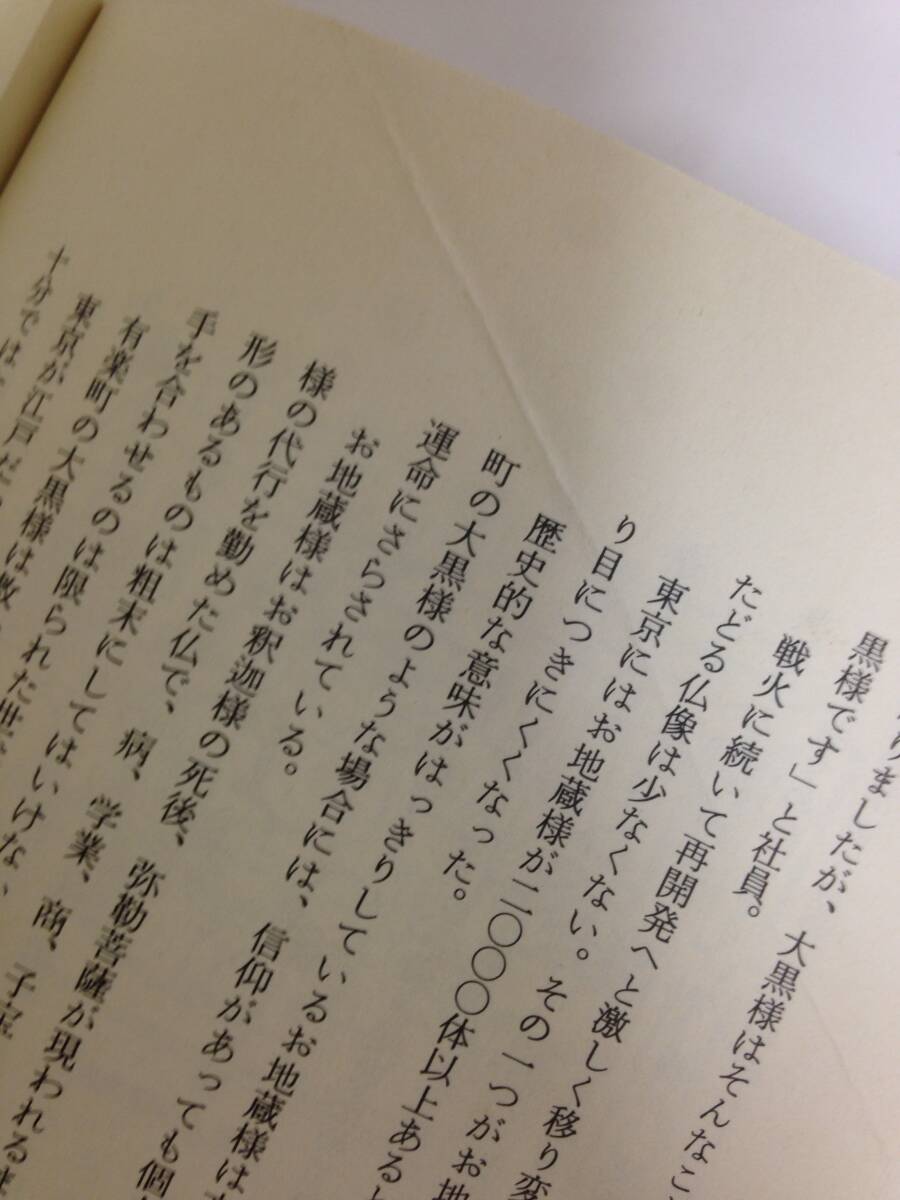 りましたが、大黒様はそんなこ
黒様です」と社員。
戦火に続いて再開発へと激しく移り変
たどる仏像は少なくない。その一つがお地
東京にはお地蔵様が二〇〇〇体以上あると
り目につきにくくなった。
歴史的な意味がはっきりしているお地蔵様は
町の大黒様のような場合には、信仰があっても個
運命にさらされている。
お地蔵様はお釈迦様の死後、弥勒菩薩が現われる
様の代行を勤めた仏で、病、学業、商、子宝
形のあるものは粗末にしてはいけない
手を合わせるのは限られた世
有楽町の大黒様は
東京が江戸だ
十分では